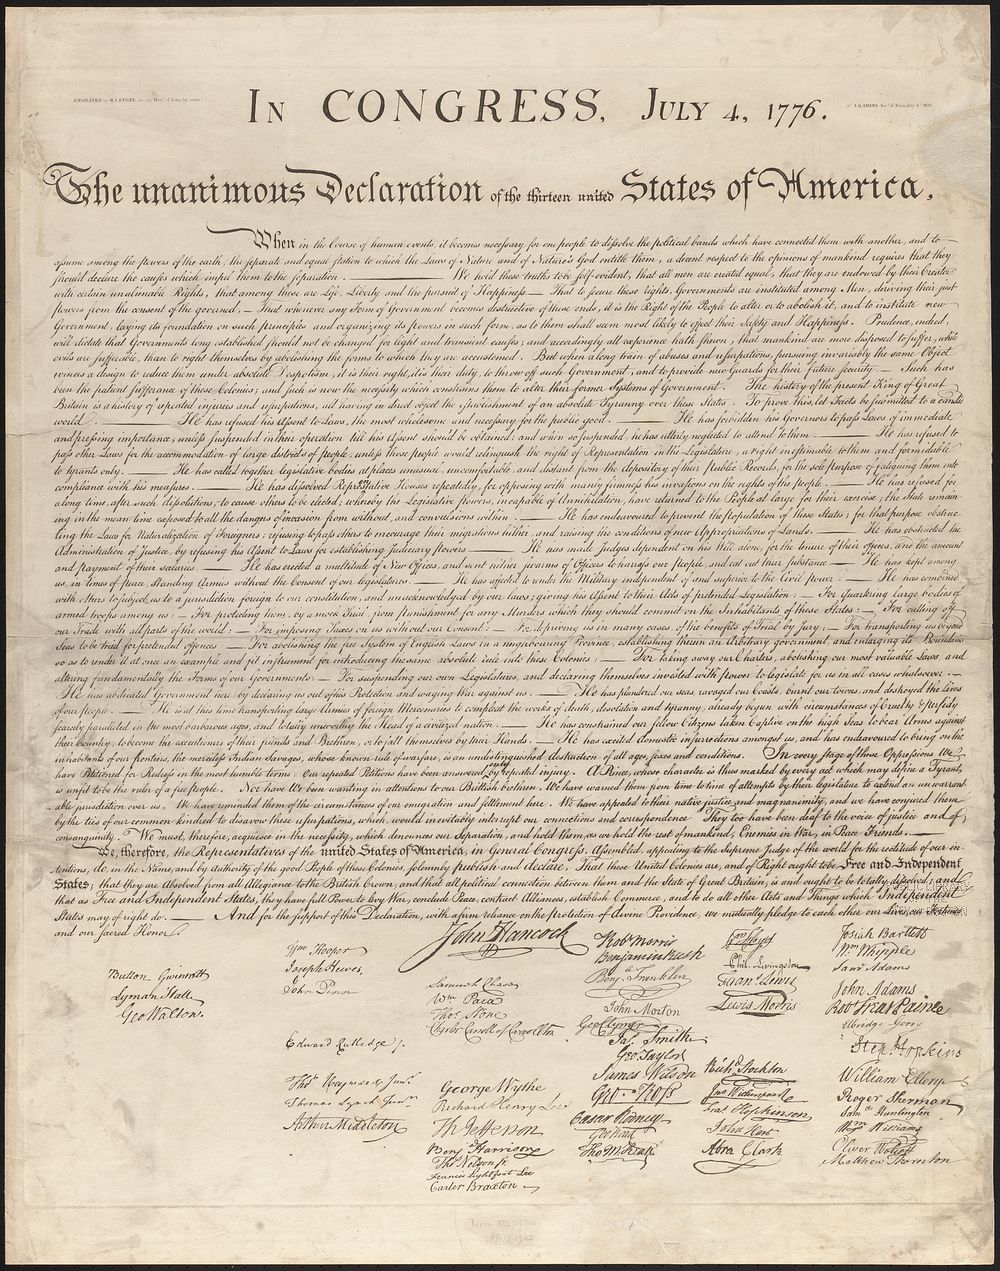 ENGRAVED by W.I.STONE, for the Dept. of State, by order
of J.Q.ADAMS Secy. of State July 4th 1823.
IN CONGRESS, JULY 4, 1776.
The unanimous Declaration of the thirteen united States of America,
When in the Course of human events, it becomes necessary for one people to dissolve the political bands which have connected them with another, and to
assume among the powers of the earth, the separate and equal station to which the Laws of Nature and of Nature's God entitle them, a decent respect to the opinions of mankind requires that they
should declare the causes which impel them to the separation. — We hold these truths to be self-evident, that all men are created equal, that they are endowed by their Creator
with certain unalienable Rights, that among these are Life, Liberty and the pursuit of Happiness.— That to secure these rights, Governments are instituted among Men, deriving their just
powers from the consent of the governed,— That whenever any Form of Government becomes destructive of these ends, it is the Right of the People to alter or to abolish it, and to institute new
Government, laying its foundation on such principles and organizing its powers in such form, as to them shall seem most likely to effect their Safety and Happiness. Prudence, indeed,
will dictate that Governments long established should not be changed for light and transient causes; and accordingly all experience hath shewn, that mankind are more disposed to suffer, while
evils are sufferable, than to right themselves by abolishing the forms to which they are accustomed. But when a long train of abuses and usurpations, pursuing invariably the same Object
evinces a design to reduce them under absolute Despotism, it is their right, it is their duty, to throw off such Government, and to provide new Guards for their future security.— Such has
been the patient sufferance of these Colonies; and such is now the necessity which constrains them to alter their former Systems of Government. The history of the present King of Great
Britain is a history of repeated injuries and usurpations, all having in direct object the establishment of an absolute Tyranny over these States. To prove this, let Facts be submitted to a candid
world. — He has refused his Assent to Laws, the most wholesome and necessary for the public good. — He has forbidden his Governors to pass Laws of immediate
and pressing importance, unless suspended in their operation till his Assent should be obtained; and when so suspended, he has utterly neglected to attend to them. — He has refused to
pass other Laws for the accommodation of large districts of people, unless those people would relinquish the right of Representation in the Legislature, a right inestimable to them and formidable
to tyrants only. — He has called together legislative bodies at places unusual, uncomfortable, and distant from the depository of their Public Records, for the sole purpose of fatiguing them into
compliance with his measures. — He has dissolved Representative Houses repeatedly, for opposing with manly firmness his invasions on the rights of the people. — He has refused for
a long time, after such dissolutions, to cause others to be elected; whereby the Legislative powers, incapable of Annihilation, have returned to the People at large for their exercise; the State remain-
ing in the mean time exposed to all the dangers of invasion from without, and convulsions within. — He has endeavoured to prevent the population of these States; for that purpose obstruc-
ting the Laws for Naturalization of Foreigners; refusing to pass others to encourage their migrations hither, and raising the conditions of new Appropriations of Lands. — He has obstructed the
Administration of Justice, by refusing his Assent to Laws for establishing Judiciary powers. — He has made Judges dependent on his Will alone, for the tenure of their offices, and the amount
and payment of their salaries. — He has erected a multitude of New Offices, and sent hither swarms of Officers to harrass our people, and eat out their substance. — He has kept among
us, in times of peace, Standing Armies without the Consent of our legislatures. — He has affected to render the Military independent of and superior to the Civil power. — He has combined
with others to subject us to a jurisdiction foreign to our constitution, and unacknowledged by our laws; giving his Assent to their Acts of pretended Legislation: — For Quartering large bodies of
armed troops among us: — For protecting them, by a mock Trial, from punishment for any Murders which they should commit on the Inhabitants of these States: — For cutting off
our Trade with all parts of the world: — For imposing Taxes on us without our Consent: — For depriving us in many cases, of the benefits of Trial by Jury: — For transporting us beyond
Seas to be tried for pretended offences — For abolishing the free System of English Laws in a neighbouring Province, establishing therein an Arbitrary government, and enlarging its Boundaries
so as to render it at once an example and fit instrument for introducing the same absolute rule into these Colonies: — For taking away our Charters, abolishing our most valuable Laws, and
altering fundamentally the Forms of our Governments: — For suspending our own Legislatures, and declaring themselves invested with power to legislate for us in all cases whatsoever. —
He has abdicated Government here, by declaring us out of his Protection and waging War against us. — He has plundered our seas, ravaged our Coasts, burnt our towns, and destroyed the Lives
of our people. — He is at this time transporting large Armies of foreign Mercenaries to compleat the works of death, desolation and tyranny, already begun with circumstances of Cruelty & perfidy
scarcely paralleled in the most barbarous ages, and totally unworthy the Head of a civilized nation. — He has constrained our fellow Citizens taken Captive on the high Seas to bear Arms against
their Country, to become the executioners of their friends and Brethren, or to fall themselves by their Hands. — He has excited domestic insurrections amongst us, and has endeavoured to bring on the
inhabitants of our frontiers, the merciless Indian Savages, whose known rule of warfare, is an undistinguished destruction of all ages, sexes and conditions. In every stage of these Oppressions We
have Petitioned for Redress in the most humble terms: Our repeated Petitions have been answered by repeated injury. A Prince, whose character is thus marked by every act which may define a Tyrant,
is unfit to be the ruler of a free people. Nor have We been wanting in attentions to our Brittish brethren. We have warned them from time to time of attempts by their legislature to extend an unwarrant-
able jurisdiction over us. We have reminded them of the circumstances of our emigration and settlement here. We have appealed to their native justice and magnanimity, and we have conjured them
by the ties of our common kindred to disavow these usurpations, which, would inevitably interrupt our connections and correspondence. They too have been deaf to the voice of justice and of
consanguinity. We must, therefore, acquiesce in the necessity, which denounces our Separation, and hold them, as we hold the rest of mankind, Enemies in War, in Peace Friends. —
We, therefore, the Representatives of the united States of America, in General Congress, Assembled, appealing to the Supreme Judge of the world for the rectitude of our in-
tentions, do, in the Name, and by Authority of the good People of these Colonies, solemnly publish and declare, That these United Colonies are, and of Right ought to be Free and Independent
States; that they are Absolved from all Allegiance to the British Crown, and that all political connection between them and the State of Great Britain, is and ought to be totally dissolved; and
that as Free and Independent States, they have full Power to levy War, conclude Peace, contract Alliances, establish Commerce, and to do all other Acts and Things which Independent
States may of right do. — And for the support of this Declaration, with a firm reliance on the protection of divine Providence, we mutually pledge to each other our Lives, our Fortunes
and our sacred Honor.
Button Gwinnett
Lyman Hall
Geo Walton.
Wm Hooper
Joseph Hewes,
John Penn
Edward Rutledge /.
Thos Heyward Junr.
Thomas Lynch Junr.
Arthur Middleton
John Hancock
Samuel Chase
Wm Paca
Thos Stone
Charles Carroll of Carrollton
George Wythe
Richard Henry Lee
Th Jefferson
Benj Harrison
Thos Nelson jr.
Francis Lightfoot Lee
Carter Braxton
Robt Morris
Benjamin Rush
Benja. Franklin
John Morton
Geo Clymer
Jas. Smith
Geo. Taylor
James Wilson
Geo. Ross
Caesar Rodney
Geo Read
Tho M:Kean
Wm Floyd
Phil. Livingston
Frans. Lewis
Lewis Morris
Richd. Stockton
Jno Witherspoon
Fras. Hopkinson
John Hart
Abra Clark
Josiah Bartlett
Wm. Whipple
Saml Adams
John Adams
Robt Treat Paine
Elbridge Gerry
Step. Hopkins
William Ellery
Roger Sherman
Saml. Huntington
Wm. Williams
Oliver Wolcott
Matthew Thornton